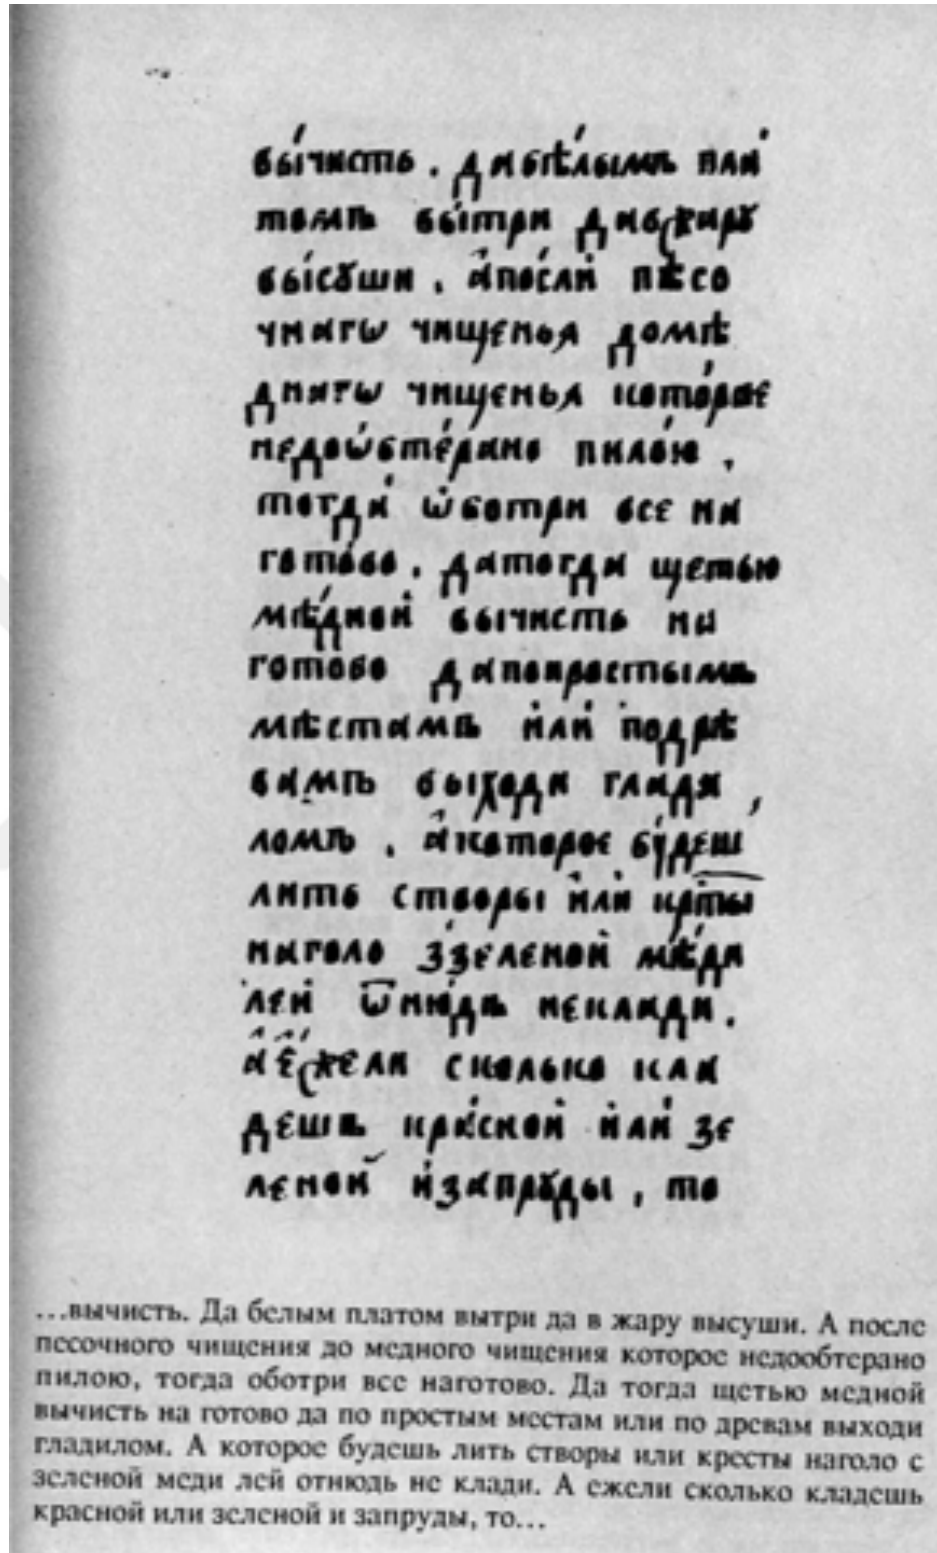 вы́чисть . дабѣ́лымъ пла́
томъ вы́три давжару
вы́сꙋши . а҆по́сли пѣсо
чнагѡ чищенья домѣ
днагѡ чищенья кото́рое
недоѡ҆бте́рано пило́ю .
тогда́ ѡ҆ботри все на
гото́во . датогда щетью
мѣ́дной вычисть на
готово дапопростымъ
мѣстамъ и҆ли̇ подрѣ
вамъ выходи глади
ломъ . а҆которое бꙋ́деш
лить створы и҆лѝ крⷭ҇ты
наголо ззеленой мѣ́ди
лей ѿню́дь неклади .
а҆є҆́жели сколько кла
дешь кра́сной и҆лѝ зе
леной и҆запрꙋды , то
...вычисть. Да белым платом вытри да в жару высуши. А после
песочного чищения до медного чищения которое недообтерано
пилою, тогда оботри все наготово. Да тогда щетью медной
вычисть на готово да по простым местам или по древам выходи
гладилом. А которое будешь лить створы или кресты наголо с
зеленой меди лей отнюдь не клади. А ежели сколько кладешь
красной или зеленой и запруды, то...